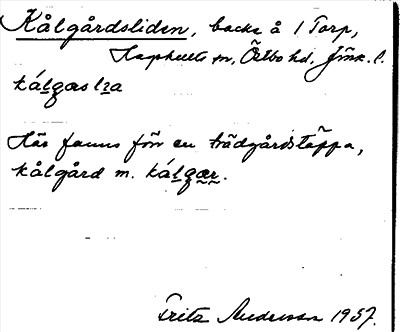 Kålgårdsliden, backe å 1 Torp,
Hagshults sn, Östbo hd, Jönk. l.
kálgas lia
Här fanns förr en trädgårdstäppa,
kålgård m. kálgær.
Fritz Andersson 1937.